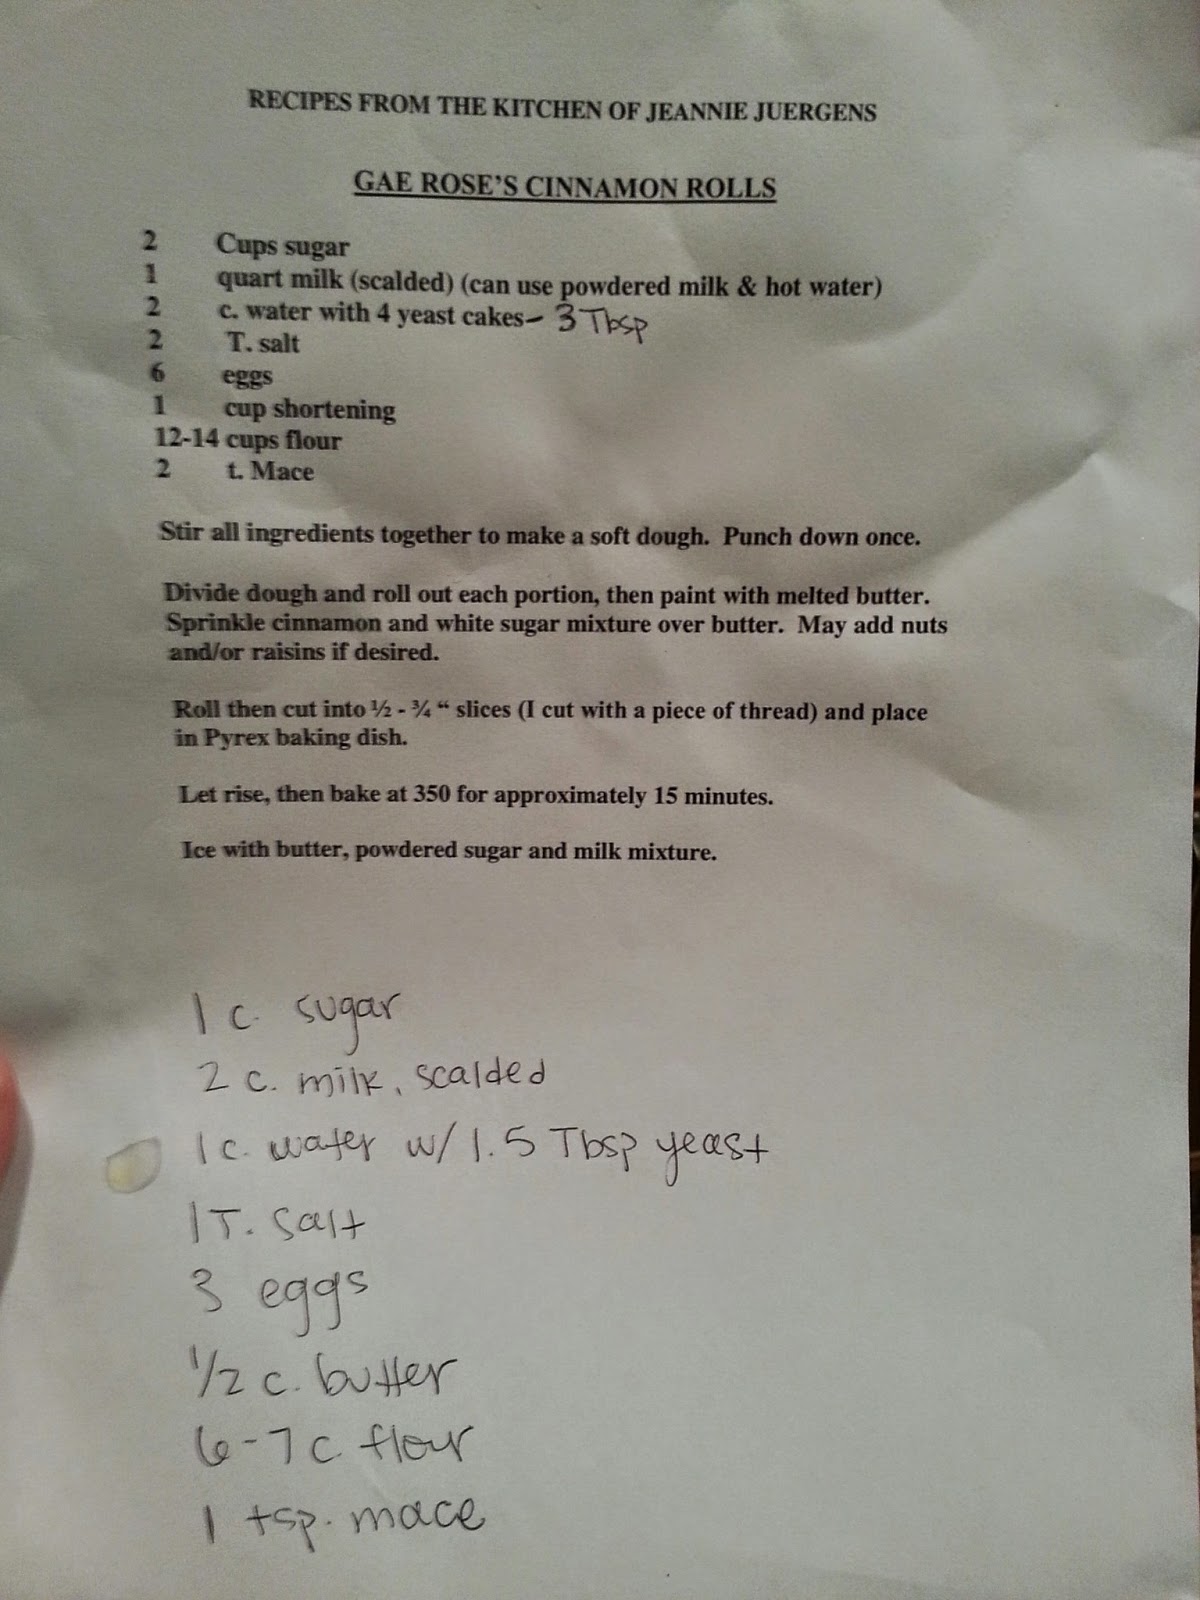 RECIPES FROM THE KITCHEN OF JEANNIE JUERGENS
GAE ROSE'S CINNAMON ROLLS
2 Cups sugar
1 quart milk (scalded) (can use powdered milk & hot water)
2 c. water with 4 yeast cakes- 3 Tbsp
2 T. salt
6 eggs
1 cup shortening
12-14 cups flour
2 t. Mace
Stir all ingredients together to make a soft dough. Punch down once.
Divide dough and roll out each portion, then paint with melted butter.
Sprinkle cinnamon and white sugar mixture over butter. May add nuts
and/or raisins if desired.
Roll then cut into ½ - ¾ “ slices (I cut with a piece of thread) and place
in Pyrex baking dish.
Let rise, then bake at 350 for approximately 15 minutes.
Ice with butter, powdered sugar and milk mixture.
1 c. sugar
2 c. milk, scalded
1 c. water w/ 1.5 Tbsp yeast
1 T. salt
3 eggs
1/2 c. butter
6-7 c. flour
1 tsp. mace